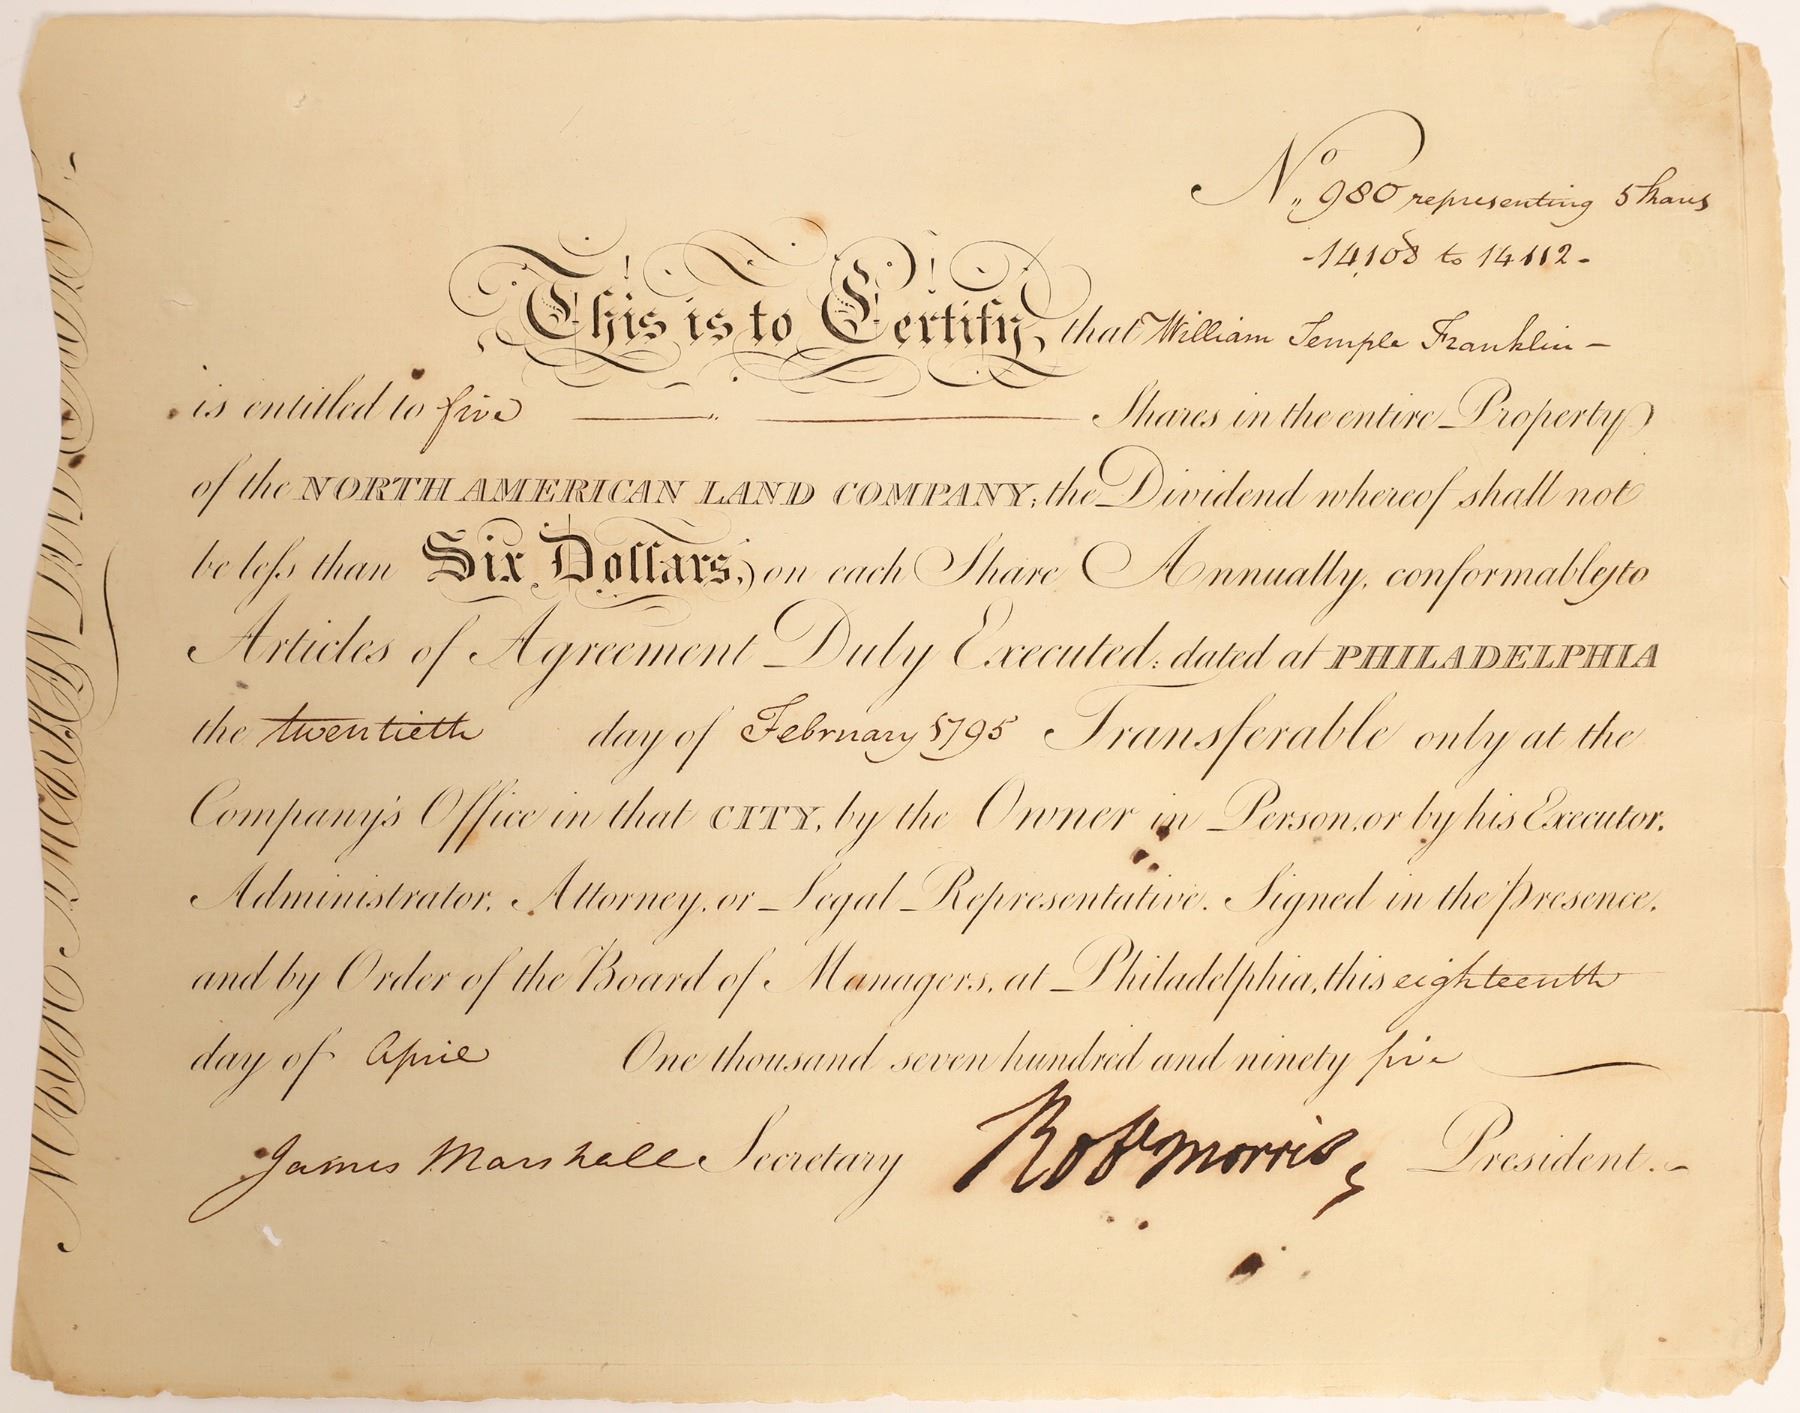 No 980 representing 5 Shares
-14,108 to 14112-
This is to Certify, that William Temple Franklin —
is entitled to five Shares in the entire Property
of the NORTH AMERICAN LAND COMPANY; the Dividend whereof shall not
be less than Six Dollars, on each Share Annually, conformably to
Articles of Agreement Duly Executed; dated at PHILADELPHIA
the twentieth day of February 1795 Transferable only at the
Company's Office in that CITY, by the Owner in Person, or by his Executor,
Administrator, Attorney, or Legal Representative. Signed in the presence,
and by Order of the Board of Managers, at Philadelphia, this eighteenth
day of April One thousand seven hundred and ninety five
James Marshall Secretary Robt Morris President.